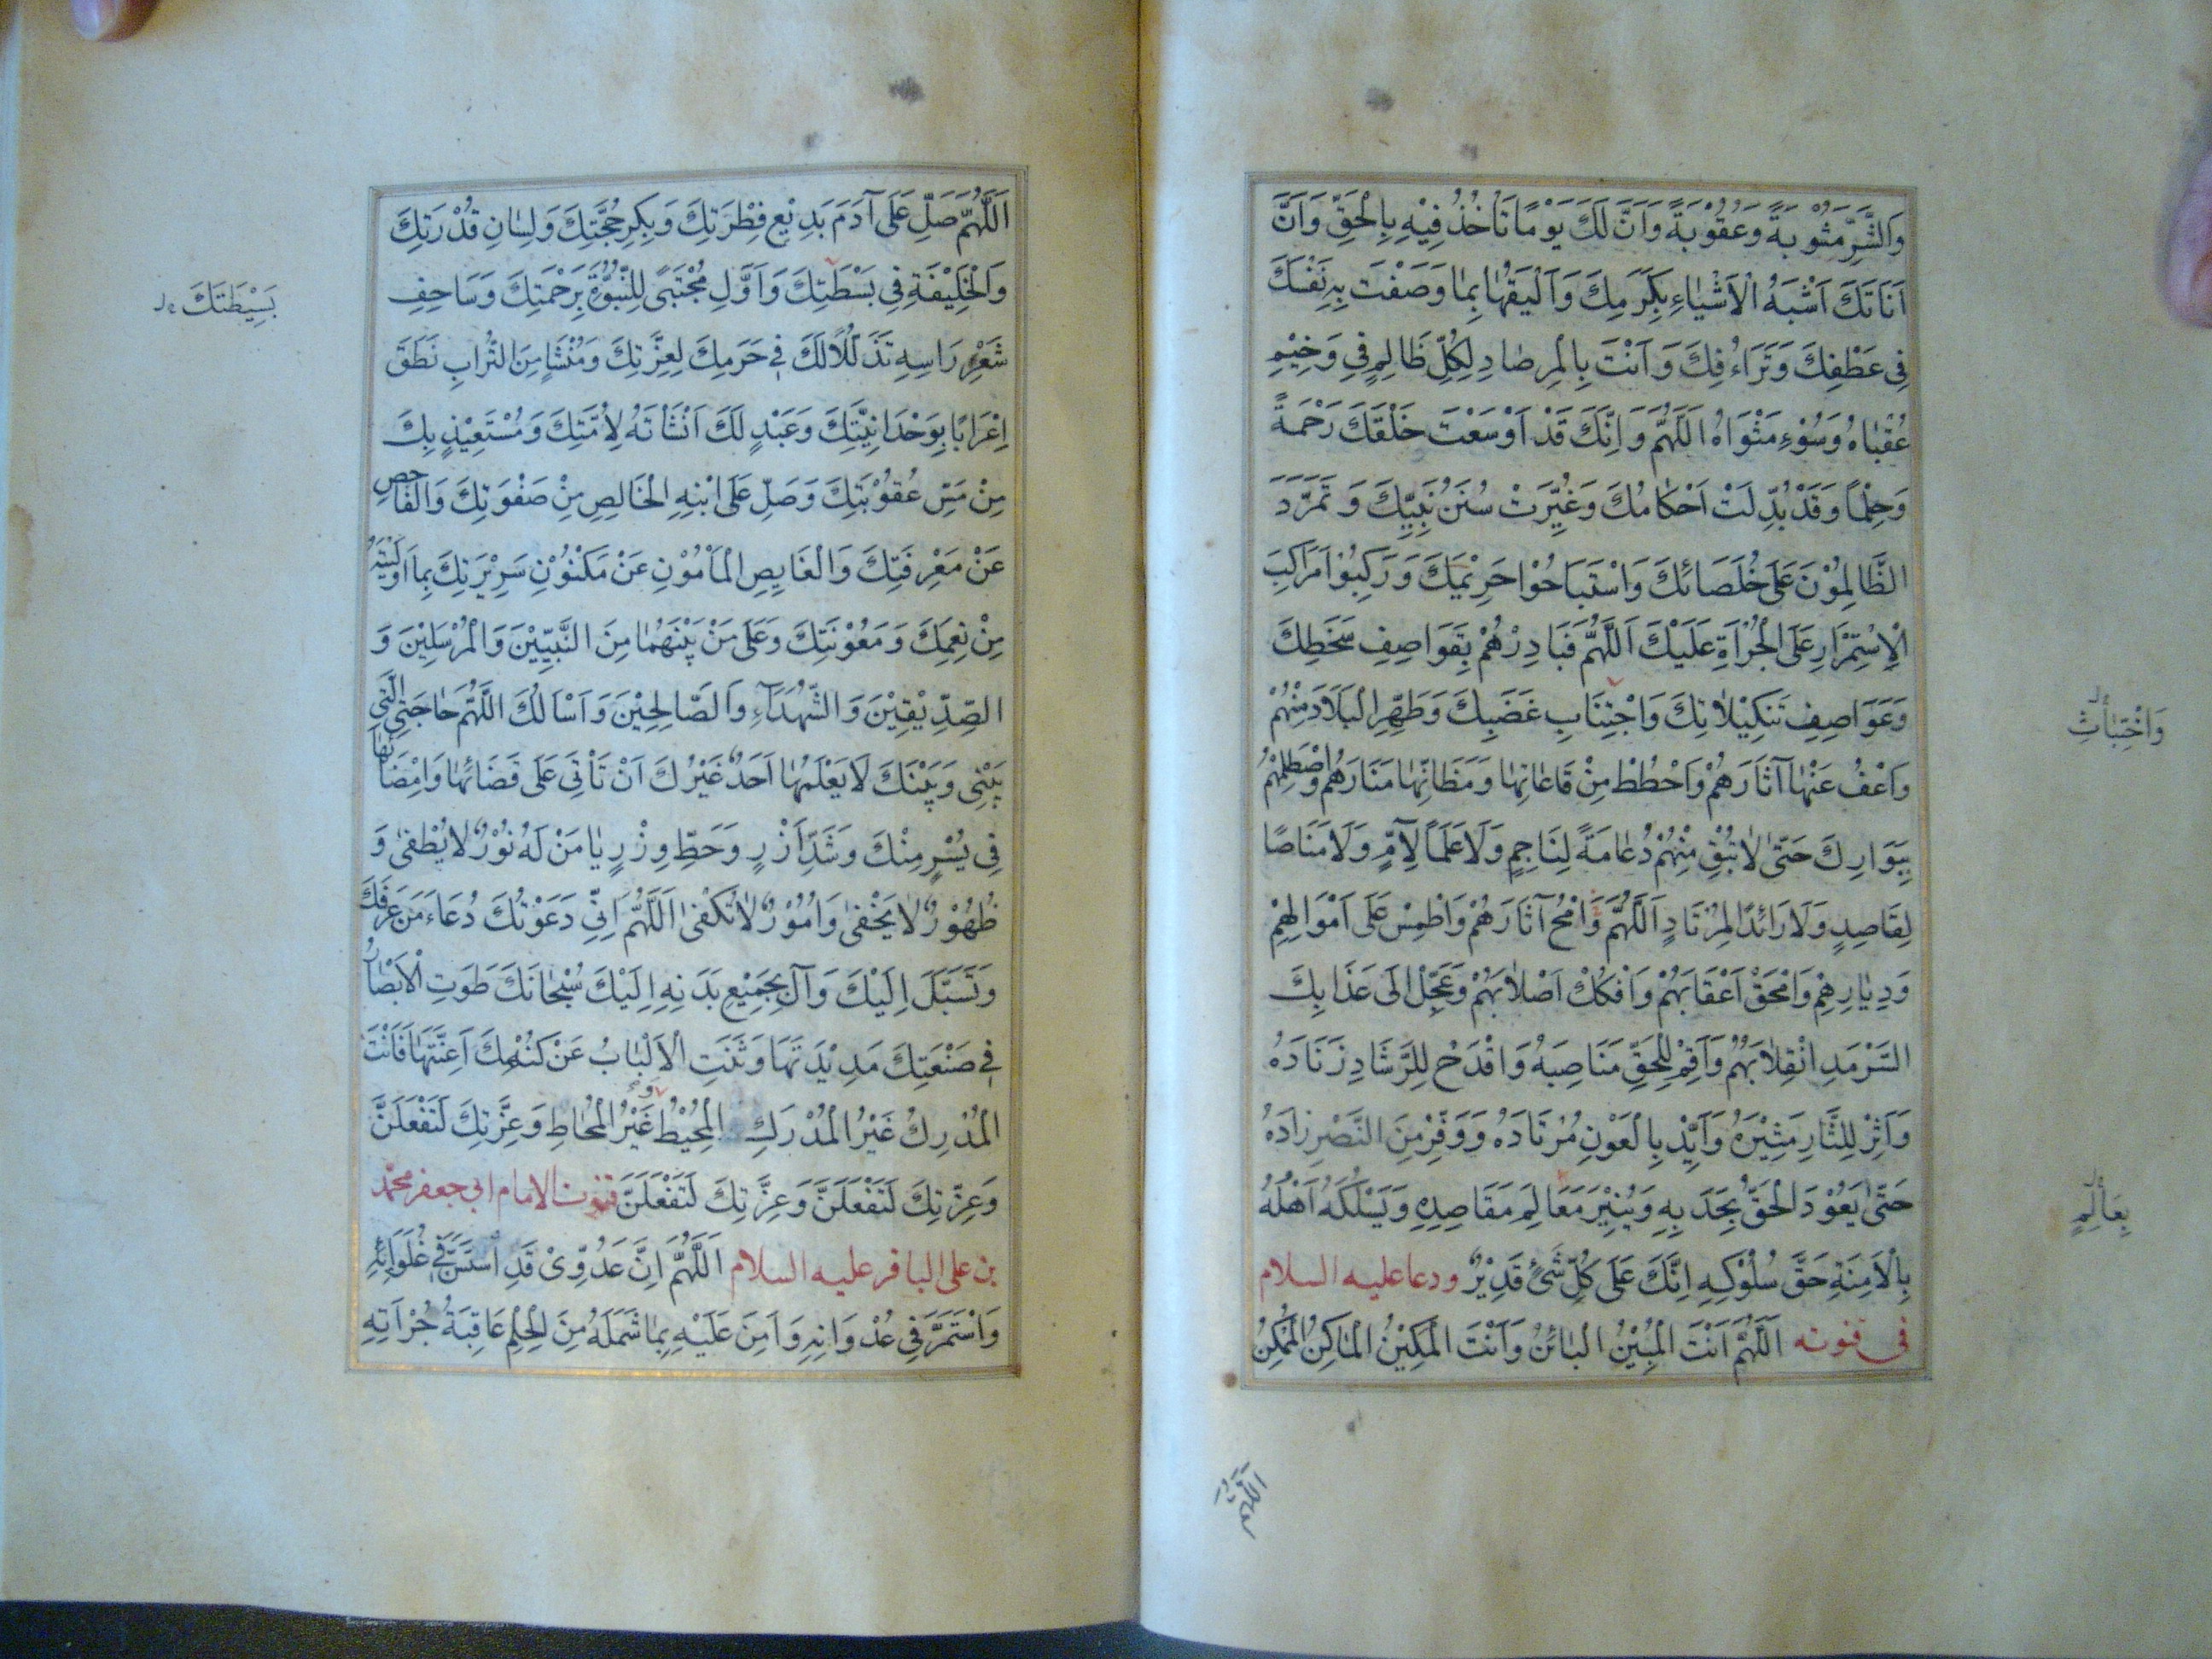 وَالشَّرِّ مَثُوْبَةً وَعُقُوْبَةً وَاَنَّ لَكَ يَوْمًا تَأْخُذُ فِيْهِ بِالْحَقِّ وَاَنَّ
اَنَاتَكَ اَشْبَهُ الْاَشْيَاءِ بِكَرَمِكَ وَاَلْيَقُهَا بِمَا وَصَفْتَ بِهِ نَفْسَكَ
فِى عَطْفِكَ وَتَرَاءُفِكَ وَاَنْتَ بِالْمِرصَادِ لِكُلِّ ظَالِمٍ فِى وَخِيْمِ
عُقْبَاهُ وَسُوْءِ مَثْوَاهُ اَللَّهُمَّ وَاِنَّكَ قَدْ اَوْسَعْتَ خَلْقَكَ رَحْمَةً
وَحِلْماً وَقَدْ بُدِّلَتْ اَحْكَامُكَ وَغُيِّرَتْ سُنَنُ نَبِيِّكَ وَتَمَرَّدَ
الظَّالِمُوْنَ عَلَى خُلَصَائكَ وَاسْتَبَاحُوْا حَرِيْمَكَ وَرَكِبُوْا مَرَاكِبَ
الْاِسْتِمْرَارِ عَلَى الْجُرْاَةِ عَلَيْكَ اَللَّهُمَّ فَبَادِرْهُمْ بِقَوَاصِفِ سَخَطِكَ
وَعَوَاصِفِ تَنكِيْلَاتِكَ وَاجْتِنَابِ غَضَبِكَ وَطَهِّرِ الْبَلَادَ مِنْهُمْ
وَاخْتِبَأثِ
وَاعْفُ عَنْهَا آثَارَهُمْ وَاحْطُطْ مِنْ قَاعَاتِهَا وَمَظَانِّهَا مَنَارَهُمْ وَاصْطَلِمْهُمْ
بِبَوَارِكَ حَتَّى لَاتُبْقِ مِنْهُمْ دُعَامَةً لِنَاجِمٍ وَلَا عَلَماً لِآمٍّ وَلَا مَنَاصًا
لِقَاصِدٍ وَلَا رَائدًا لِمُرْتَادٍ اَللَّهُمَّ وَامْحُ آثَارَهُمْ وَاطْمِسْ عَلَى اَمْوَالِهِمْ
وَدِيَارِهِمْ وَامْحَقْ اَعْقَابَهُمْ وَافْكُكْ اَصْلَابَهُمْ وَعَجِّلْ اِلَى عَذَابِكَ
السَّرْمَدِ انْقِلَابَهُمْ وَاَقِمْ لِلْحَقِّ مَنَاصِبَهُ وَاقْدَحْ لِلرَّشَادِ زَنَادَهُ
وَاَثِرْ لِلثَّارِ مَثِيْرَهُ وَاَيِّدْ بِالْعَوْنِ مُرْتَادَهُ وَوَفِّرْ مِنَ النَّصْرِ زَادَهُ
حَتَّى يَعُوْدَ الْحَقُّ بِجَدَبِهِ وَيُنِيْرَ مَعَالِمَ مَقَاصِدِهِ وَيَسْلُكَهُ اَهْلُهُ
بِعَألِمٍ
بِالْاَمِنَةِ حَقَّ سُلُوْكِهِ اِنَّكَ عَلَى كُلِّ شَىْءٍ قَدِيْرٌ ودعا عليه السلام
فى قنوته اَللَّهُمَّ اَنْتَ الْمُبِيْنُ الْبَائنُ وَاَنْتَ الْمَكِيْنُ الْمَاكِنُ الْمُمْكِنُ
اَللَّهُمَّ صَلِّ عَلَى آدَمَ بَدِيْعِ فِطْرَتِكَ وَبِكْرِ حُجَّتِكَ وَلِسَانِ قُدْرَتِكَ
وَالْخَلِيْفَةِ فِى بَسْطَتِكَ وَاَوَّلِ مُجْتَبًى لِلنُّبُوَّةِ بِرَحْمَتِكَ وَسَاحِفِ
بَسِيْطَتَكَ
شَعْرِ رَاسِهِ تَذَلُّلًا لَكَ فِى حَرَمِكَ لِعِزَّتِكَ وَمُنْشَإٍ مِنَ التُّرَابِ نَطَقَ
اِعْرَابًا بِوَحْدَانِيَّتِكَ وَعَبْدٍ لَكَ اَنْشَاْتَهُ لِاُمَّتِكَ وَمُسْتَعِيْذٍ بِكَ
مِنْ مَسِّ عُقُوْبَتِكَ وَصَلِّ عَلَى ابْنِهِ الْخَالِصِ مِنْ صَفْوَتِكَ وَالْفَاحِصِ
عَنْ مَعْرِفَتِكَ وَالْغَايِصِ الْمَاْمُوْنِ عَنْ مَكْنُوْنِ سَرِيْرَتِكَ بِمَا اَوْلَيْتَهُ
مِنْ نِعَمِكَ وَمَعُوْنَتِكَ وَعَلَى مَنْ بَيْنَهُمَا مِنَ النَّبِيِّيْنَ وَالْمُرْسَلِيْنَ وَ
الصِّدِّيْقِيْنَ وَالشُّهَدَآءِ وَالصَّالِحِيْنَ وَاَسْاَلُكَ اللَّهُمَّ حَاجَتِى الَّتِى
بَيْنِى وَبَيْنَكَ لَا يَعْلَمُهَا اَحَدٌ غَيْرُكَ اَنْ تَاْتِىَ عَلَى قَضَائهَا وَاِمْضَائهَا
فِى يُسْرٍ مِنْكَ وَشَدِّ اَزْرٍ وَحَطِّ وِزْرٍ يَا مَنْ لَهُ نُوْرٌ لَا يُطْفَى وَ
ظُهُوْرٌ لَا يَخْفَى وَاُمُوْرٌ لَا تُكْفَى اَللَّهُمَّ اِنِّى دَعَوْتُكَ دُعَاءَ مَنْ عَرَفَكَ
وَتَسَبَّلَ اِلَيْكَ وَآلَ بِجَمِيْعِ بَدَنِهِ اِلَيْكَ سُبْحَانَكَ طَوَتِ الْاَبْصَارُ
فِى صَنْعَتِكَ مَدِيْدَتَهَا وَثَنَتِ الْاَلْبَابُ عَنْ كُنْهِكَ اَعِنَّتَهَا فَاَنْتَ
الْمُدْرِكُ غَيْرُ الْمُدْرَكِ الْمُحِيْطُ غَيْرُ الْمُحَاطِ وَعِزَّتِكَ لَتَفْعَلَنَّ
وَعِزَّتِكَ لَتَفْعَلَنَّ وَعِزَّتِكَ لَتَفْعَلَنَّ قنوت الامام ابى جعفر محمّد
بن على الباقر عليه السلام اَللَّهُمَّ اِنَّ عَدُوِّىْ قَدِ اسْتَسَنَّ فِى غُلَوَائِهِ
وَاسْتَمَرَّ فِى عُدْوَانِهِ وَاَمِنَ عَلَيْهِ بِمَا شَمَلَهُ مِنَ الْحِلْمِ عَاقِبَةُ جُرْاَتِهِ